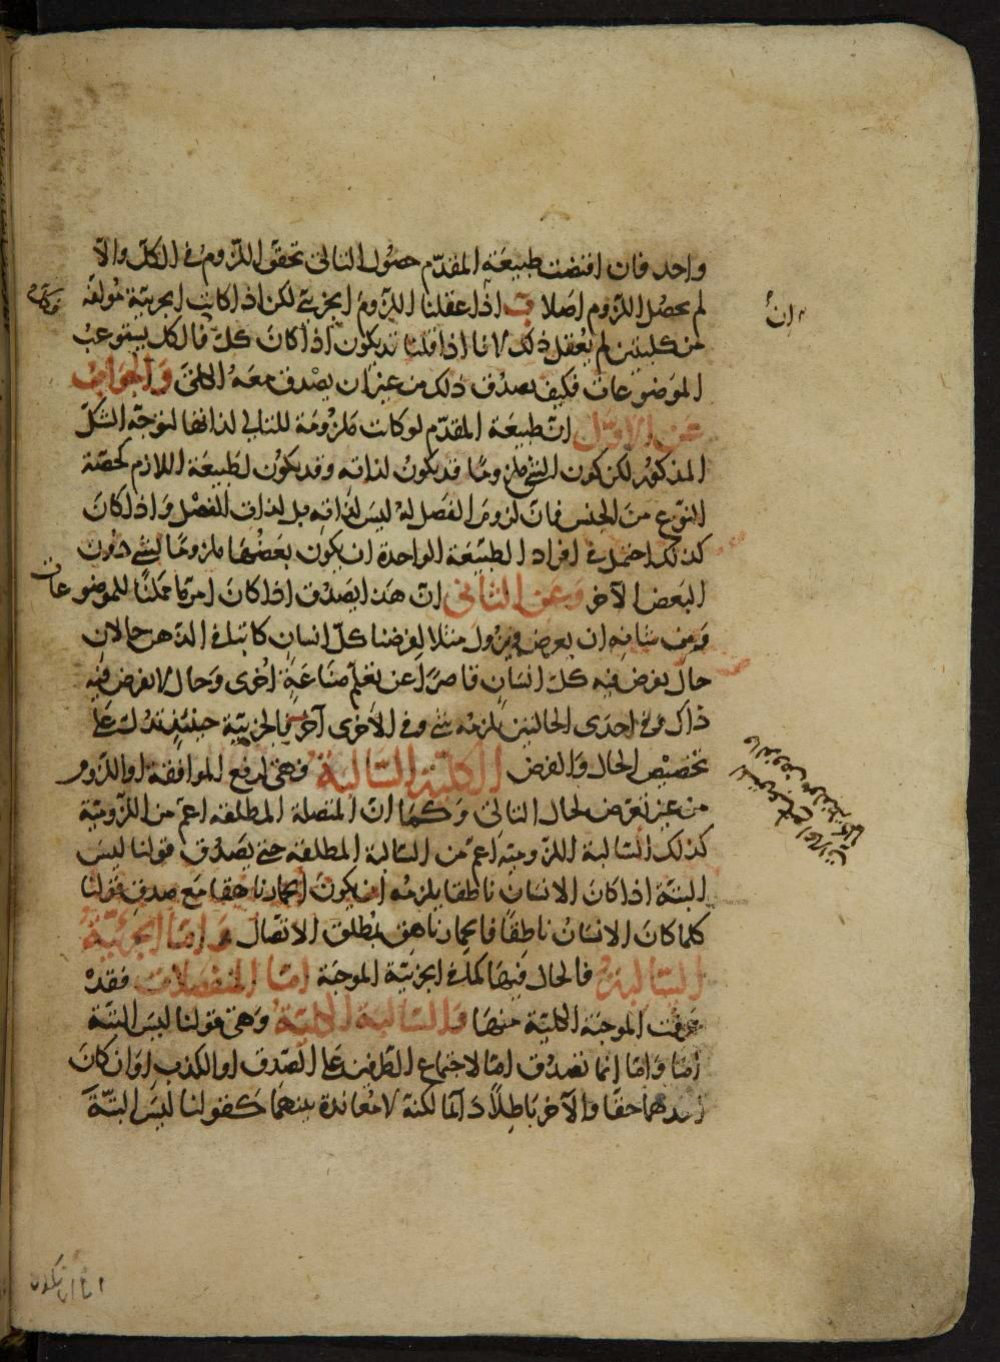 واحد فان اقتضت طبيعة المقدم حصول التالى تحقق اللزوم فى الكل والا
لم يحصل اللزوم اصلا ب اذا عقلنا اللزوم الجزئى لكن اذا كانت الجزئية مولفة
من كليتين لم يعقل ذلك لانا اذا قلنا قد يكون اذا كان كل فالكل يستوعب
الموضوعات فكيف يصدق ذلك من غير ان يصدق معه الكلى والجواب
عن الاول ان طبيعة المقدم لو كانت ملزومة للتالى لذاتها لتوجه الشك
المذكور لكن كون الشى ملزوما قد يكون لذاته وقد يكون لطبيعة اللازم كحصة
النوع من الجنس فان لزوم الفصل له ليس لذاته بل لذات الفصل واذا كان
كذلك احتمل فى افراد الطبيعة الواحدة ان يكون بعضها ملزوما لشى دون
البعض الآخر وعن الثانى ان هذا يصدق اذا كان امرا ممكنا للموضوعات
ومن شانه ان يعرض ويزول مثلا لو فرضنا كل انسان كاتبا فى الذهن حالان
حال يفرض فيه كل انسان قاصرا عن تعلم صناعة اخرى وحال لا يفرض فيه
ذاك وفى احدى الحالتين يلزمه شى وفى الاخرى آخر فالجزئية حينئذ تدل على
تخصيص الحال والفرض الكلية السالبة فهى لرفع الموافقة او اللزوم
من غير تعرض لحال التالى وكما ان المتصلة المطلقة اعم من اللزومية
كذلك السالبة اللزومية اعم من السالبة المطلقة حتى يصدق قولنا ليس
البتة اذا كان الانسان ناطقا يلزمه ان يكون الحمار ناهقا مع صدق قولنا
كلما كان الانسان ناطقا فالحمار ناهق بمطلق الاتصال واما الجزئية
السالبة فالحال فيها كما فى الجزئية الموجبة اما المنفصلات فقد
عرفت الموجبة الكلية منها والسالبة الكلية وهى قولنا ليس البتة
اما واما انما تصدق اما لاجتماع الطرفين على الصدق او الكذب او ان كان
احدهما حقا والآخر باطلا دائما لكنه لا معاندة بينهما كقولنا ليس البتة
ان
اما ان يكون